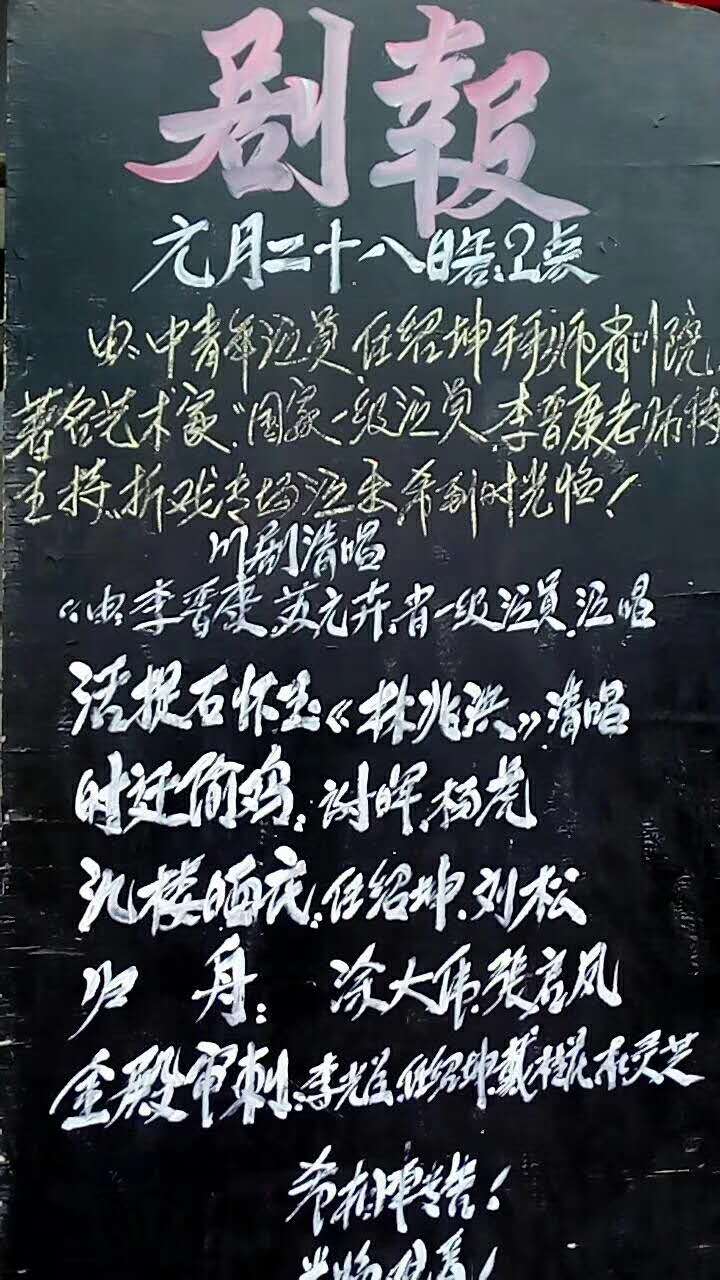 剧報
元月二十八日 2点
由:中青年演员任绍坤拜师省川院
著名艺术家"国家一级演员李晋康老师
主持.折戏专场演出,希到时光临!
川剧清唱
《由:李晋康,元卉.省一级演员.演唱
活捉石怀玉:《林兆洪》清唱
时迁偷鸡:谢晖.杨虎
汎楼晒衣:任绍坤.刘松
归舟:涂大伟.张言凤
金殿审刺:李光兰.任绍坤.戴桂花.灵芝
希相専告!
光临观看!